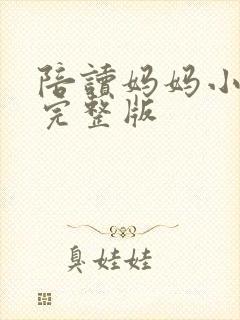 陪讀妈妈小
完整版
臭娃娃